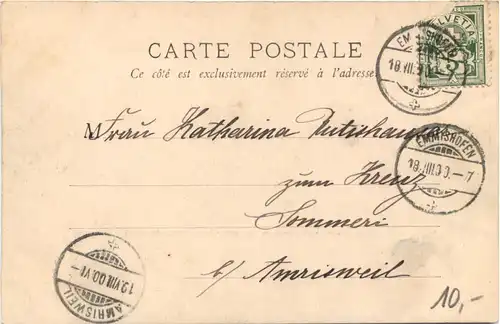 CARTE POSTALE
Ce côté est exclusivement réservé à l'adresse
HELVETIA
EMMISHOFEN
18.VIII.00.-7
M Frau Katharina Rutishauser
zum Kreuz
Sommeri
b/ Amrisweil
AMRISWEIL
19.VIII.00.VI-
10,-